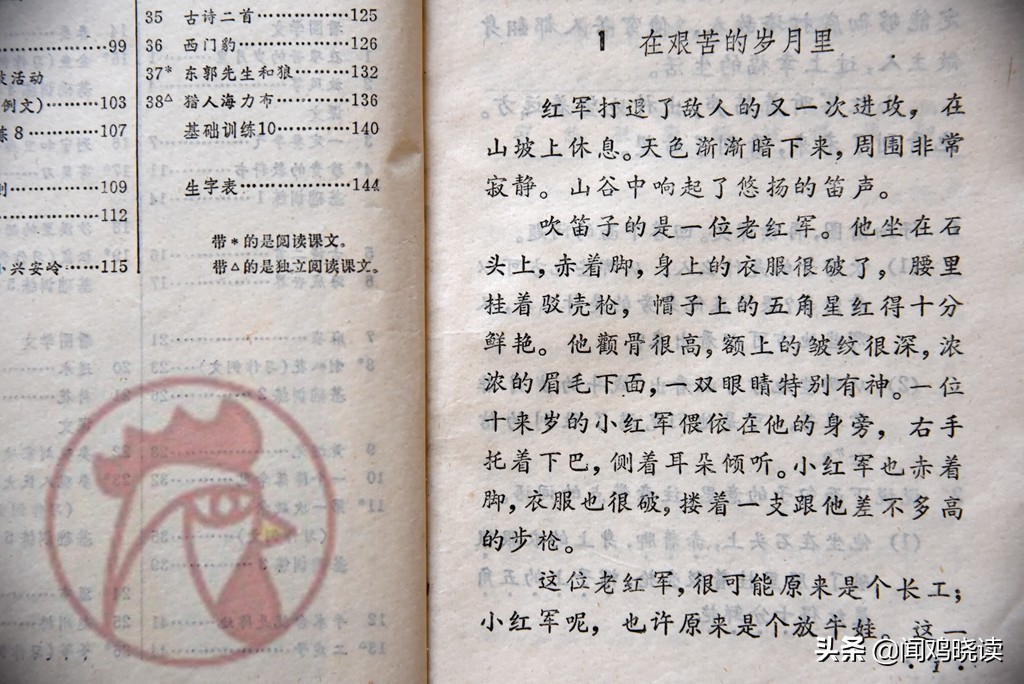 99
技活动
例文)………103
练8………107
则………109
………112
小兴安岭……115
35 古诗二首………125
36 西门豹………126
37* 东郭先生和狼………132
38△ 猎人海力布………136
基础训练10………140
生字表………144
带*的是阅读课文。
带△的是独立阅读课文。
1 在艰苦的岁月里
红军打退了敌人的又一次进攻，在
山坡上休息。天色渐渐暗下来，周围非常
寂静。山谷中响起了悠扬的笛声。
吹笛子的是一位老红军。他坐在石
头上，赤着脚，身上的衣服很破了，腰里
挂着驳壳枪，帽子上的五角星红得十分
鲜艳。他颧骨很高，额上的皱纹很深，浓
浓的眉毛下面，一双眼睛特别有神。一位
十来岁的小红军偎依在他的身旁，右手
托着下巴，侧着耳朵倾听。小红军也赤着
脚，衣服也很破，搂着一支跟他差不多高
的步枪。
这位老红军，很可能原来是个长工；
小红军呢，也许原来是个放牛娃。这一
· 1 ·
头条 @闻鸡晓读